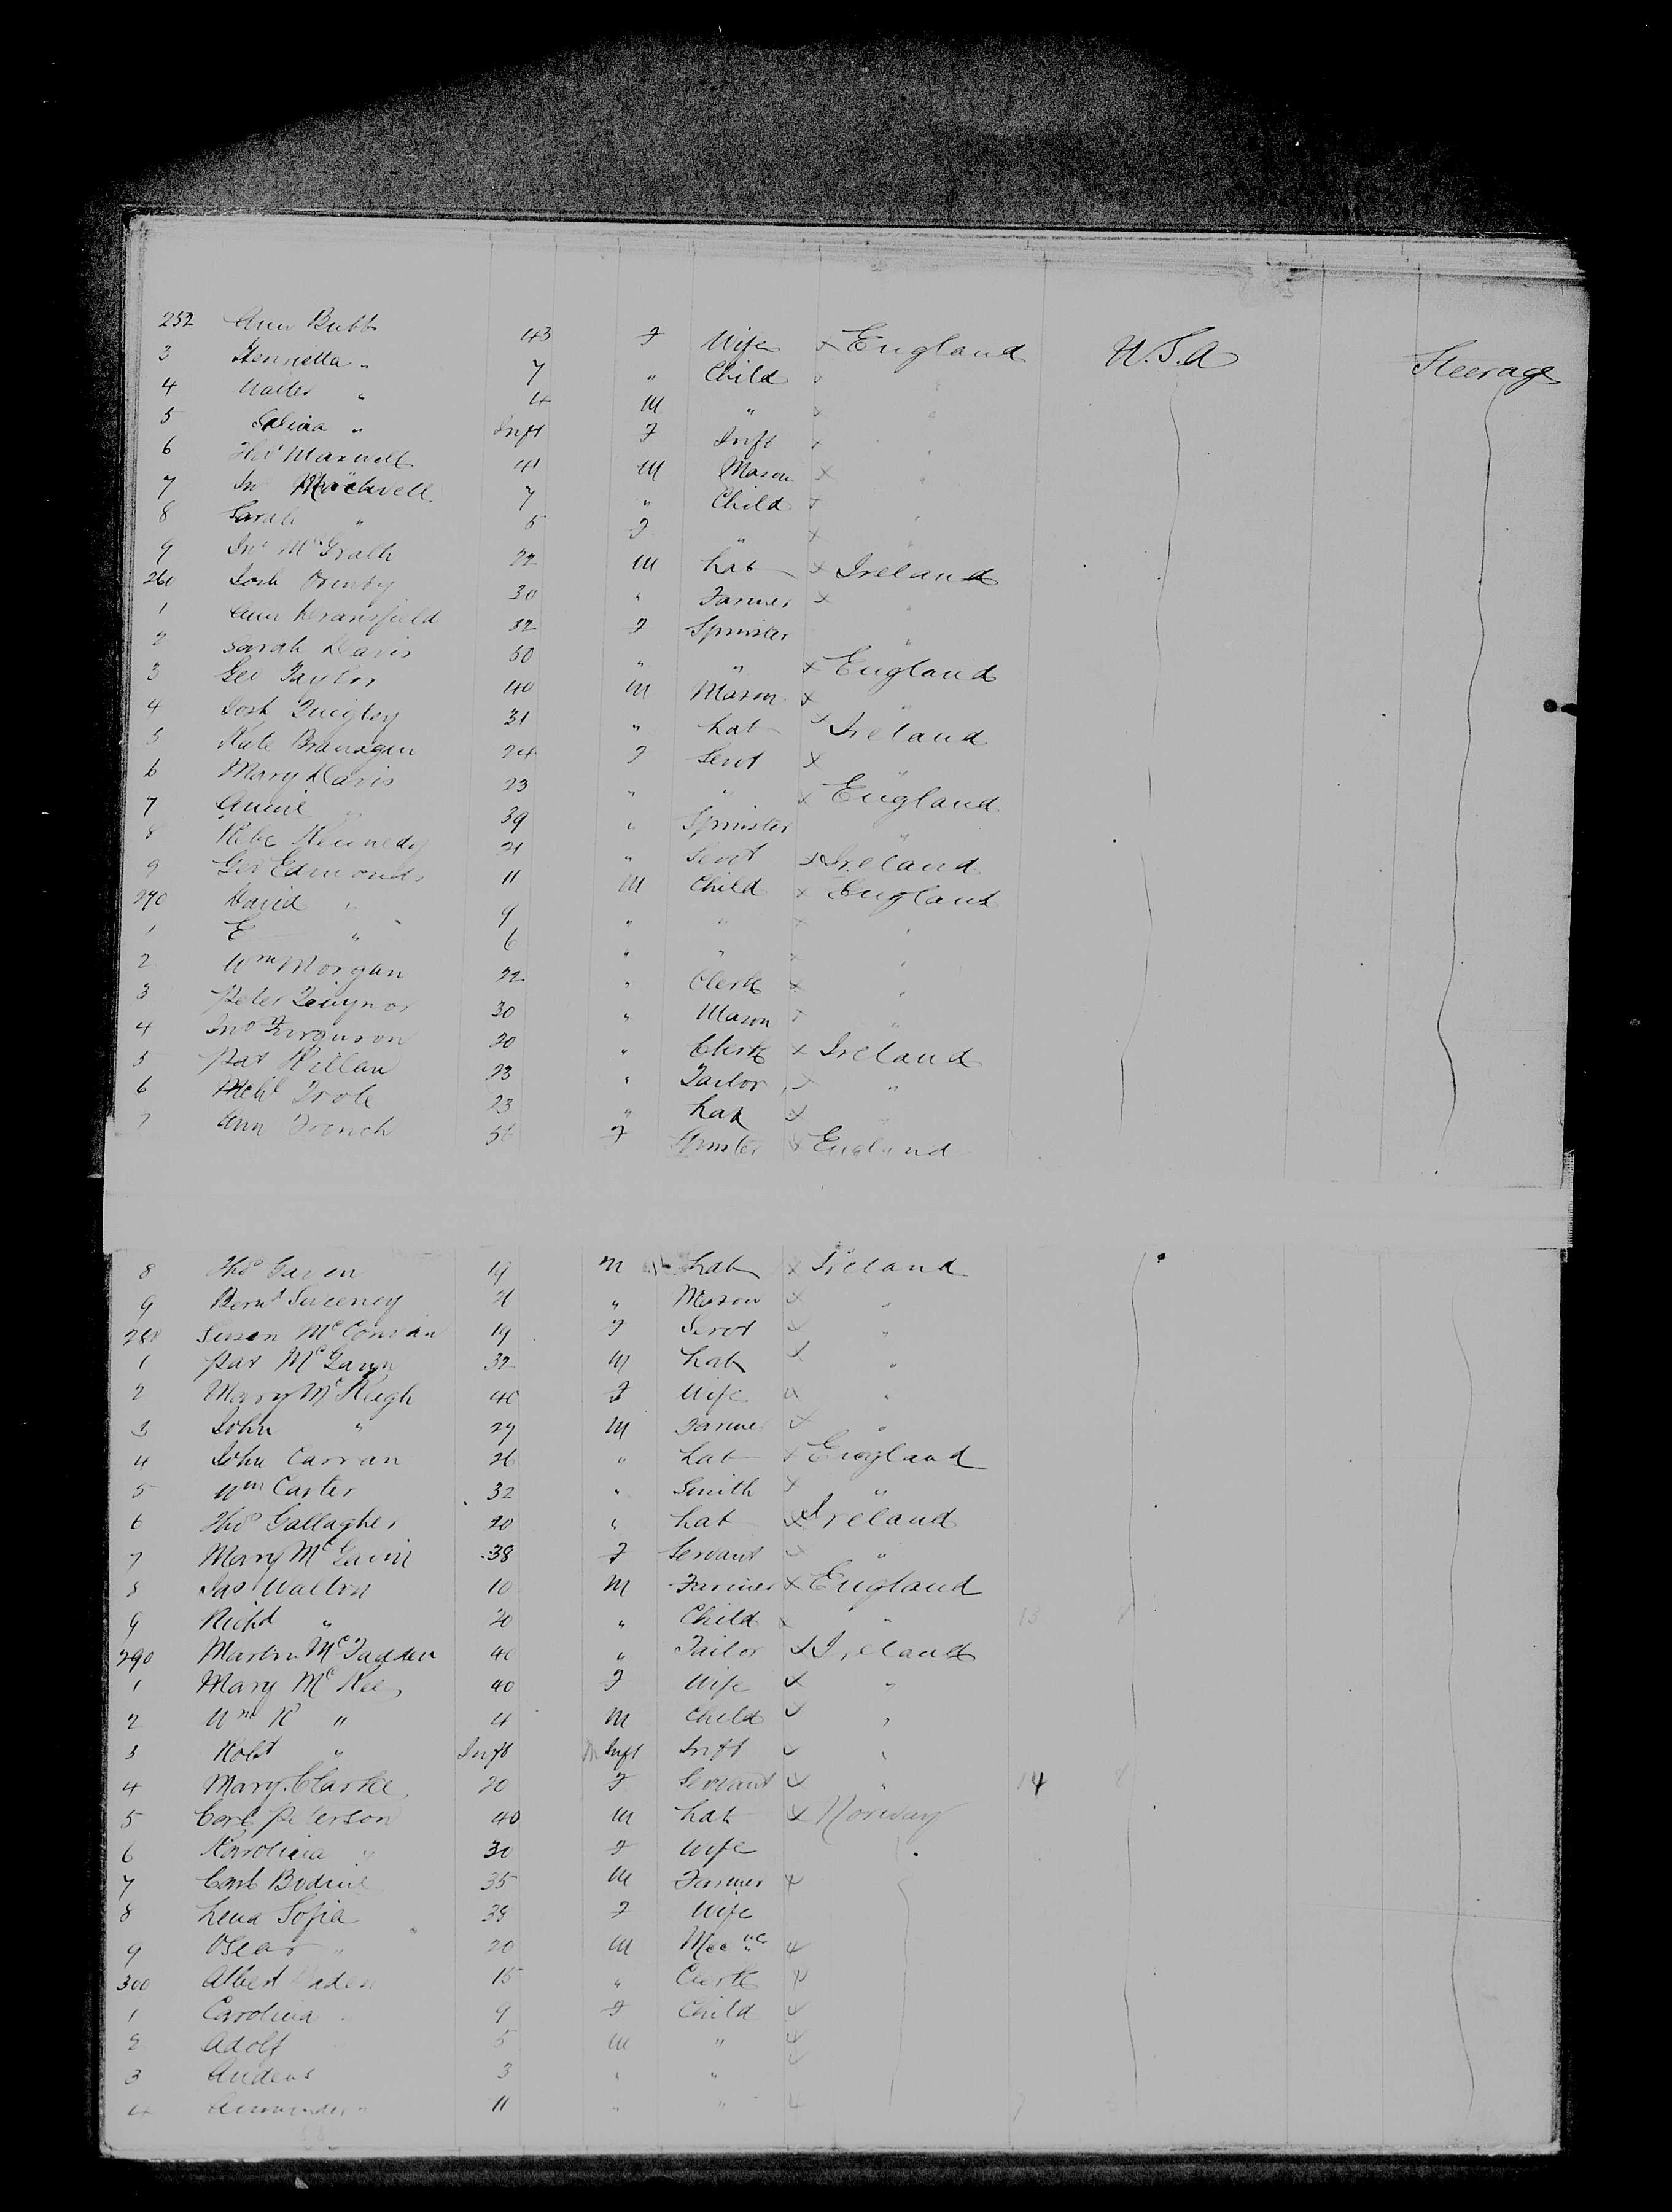 252 Ann Bubb 43 F Wife x England U.S.A Steerage
3 Henrietta " 7 " Child "
4 Walter " 4 M " x "
5 Selina " Inft F Inft x "
6 Thos Maxwell 41 M Mason x "
7 Jno 7 " Child x "
8 Sarah " 5 F " x "
9 Jno McGrath 22 M Lab x Ireland
260 Josh Ormby 30 " Farmer x "
1 Ann Dransfield 32 F Spinster "
2 Sarah Davis 50 " " x England
3 Geo Taylor 40 M Mason x "
4 Josh Quigley 31 " Lab x Ireland
5 Kate Branagan 24 F Servt x "
6 Mary Davis 23 " " x England
7 Annie " 39 " Spinster "
8 Rebc Kennedy 21 " Servt x Ireland
9 Geo Edmonds 11 M Child x England
270 David " 9 " " x "
1 E " 6 " " x "
2 Wm Morgan 22 " Clerk x "
3 Peter 30 " Mason x "
4 Jno Ferguson 20 " Clerk x Ireland
5 Pat Killan 23 " Tailor x "
6 Mchl 23 " Lab x
7 Ann French 56 F Spinster x England
8 Thos Gaven 19 M Lab x Ireland
9 Bernd Sweeney 21 " Mason x "
280 Susan 19 F Servt x "
1 Pat McGavyn 32 M Lab x "
2 Mary McKeigh 40 F Wife x "
3 John " 29 M Farmer x "
4 John Carran 26 " Lab x England
5 Wm Carter 32 " Smith x "
6 Thos Gallagher 20 " Lab x Ireland
7 Mary McGavin 38 F Servant x "
8 Jas Walton 10 M Farmer x England
9 Richd " 20 " Child x " 13
290 Martin McFadden 40 " Tailor x Ireland
1 Mary McKee 40 F Wife x "
2 Wm R " 4 M Child x "
3 Robt " Inft M Inft Inft x "
4 Mary Clarke 20 F Servant x " 14
5 Carl Peterson 40 M Lab x Norway
6 Karolina " 30 F Wife
7 Carl Bodine 35 M Farmer x
8 Lena Sofia 38 F Wife
9 Oscar " 20 M x
300 Albert 15 " Clerk x
1 Carolina 9 F Child x
2 Adolf 5 M " x
3 3 " " x
4 11 " " x